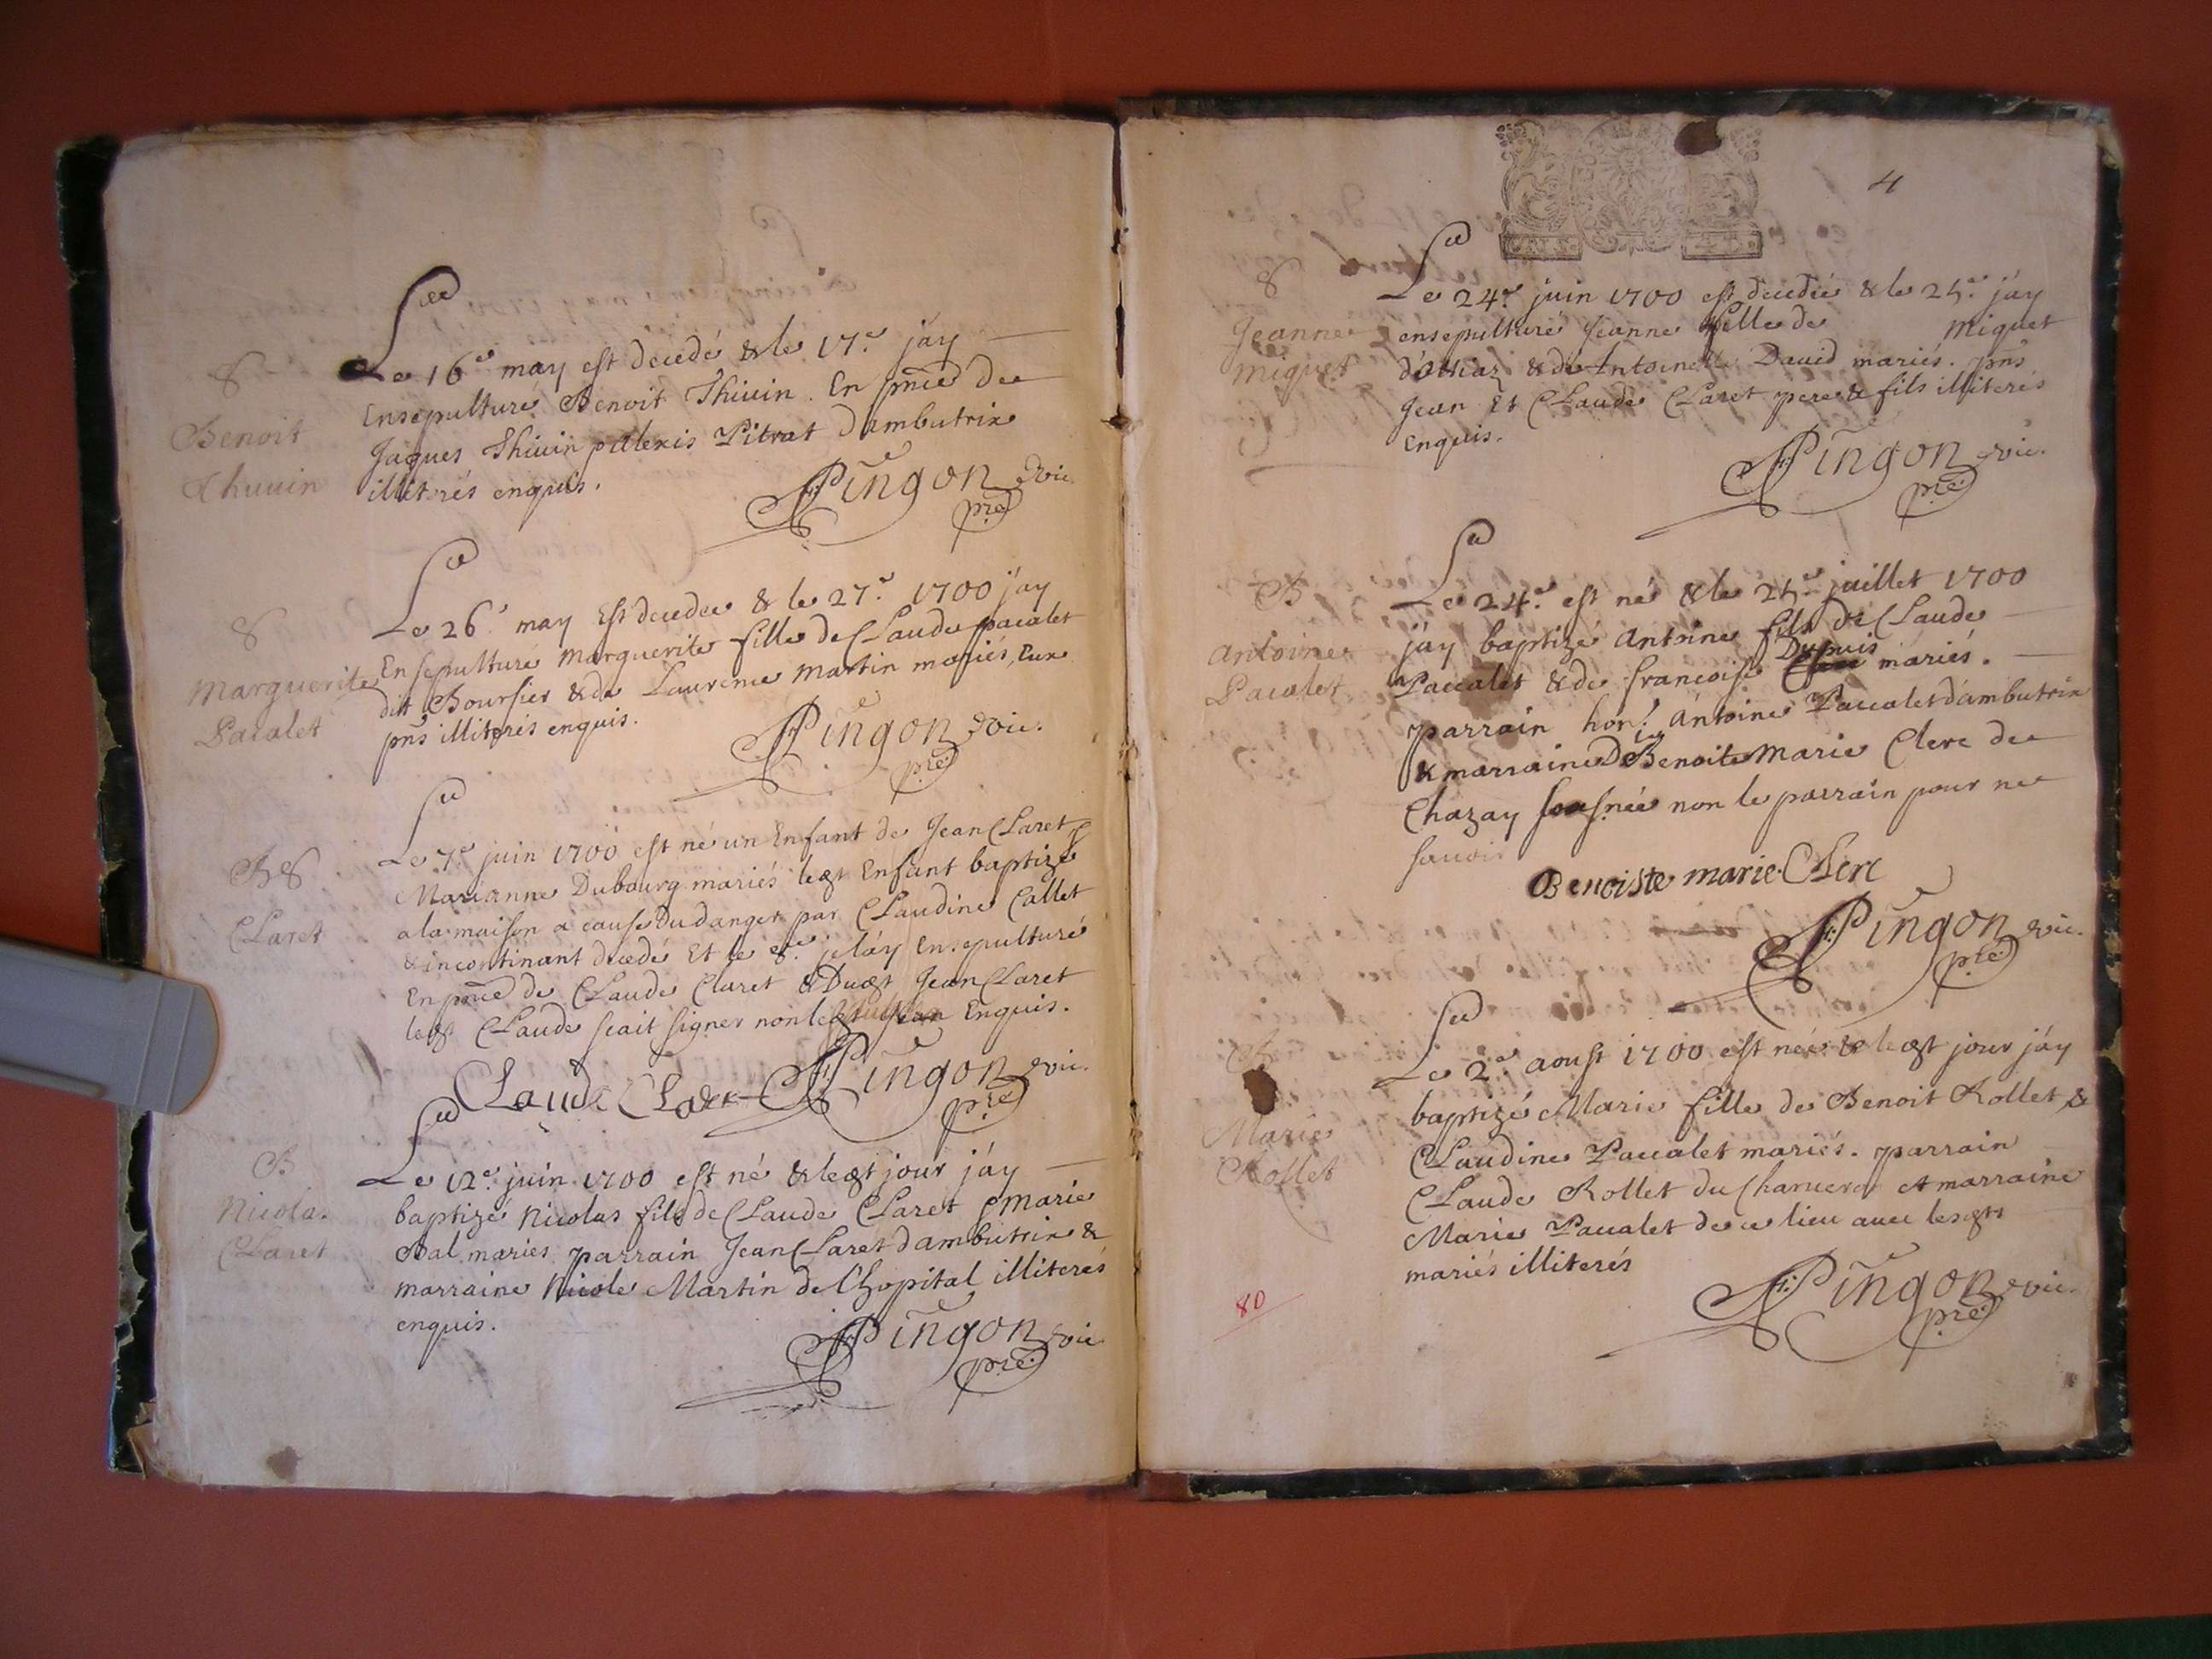 8
Benoit
Thiuin
Le 16e may est decedé & le 17e jay
Ensepulturé Benoit Thiuin. En pnce de
Jaques Thiuin & alexis Pitrat d'ambutrix
illiterés enquis.
Pingon vic.
pre
8
Marguerite
Pacalet
Le 26e may Est decedee & le 27e 1700 jay
Ensepulturé Marguerite fille de Claude pacalet
dit Boursier & de Laurence Martin mariés, Eux
pns illiterés enquis.
Pingon vic.
pre
B 8
Claret
Le 7e juin 1700 est né un Enfant de Jean Claret &
Marianne Dubourg mariés leqt Enfant baptizé
a la maison a cause du danger par Claudine Callet
& incontinant decedé Et le 8e je láy Ensepulturé
En pnce de Claude Claret & Duqt Jean Claret
leqt Claude scait signer non leqt Jean Enquis.
Claude Claret Pingon vic.
pre
B
Nicolas
Claret
Le 12e juin 1700 est né & leqt jour jáy
baptizé Nicolas fils de Claude Claret & Marie
Bal mariés parrain Jean Claret dambutrix &
marraine Nicole Martin de l'hopital illiterés
enquis.
Pingon vic
pre
4
8
Jeanne
Miguet
Le 24e juin 1700 est decedée & le 25e jáy
ensepulturé Jeanne fille de Miguet
& de Antoinette Dauid mariés. pns
Jean Et Claude Claret pere & fils illiterés
Enquis.
Pingon vic.
pre
B
Antoine
Pacalet
Le 24e est né & le 25e juillet 1700
jáy baptizé Antoine fils de Claude
Paccalet & de francoise Dupuis mariés.
parrain hon. Antoine Paccalet d'ambutrix
& marraine Dlle Benoite Marie Clerc de
Chazay sousnée non le parrain pour ne
sauoir
Benoiste marie Clerc
Pingon vic.
pre
B
Marie
Rollet
Le 2e aoust 1700 est née & leqt jour jáy
baptizé Marie fille de Benoit Rollet &
Claudine Paccalet mariés. parrain
Claude Rollet du et marraine
Marie Paccalet de ce lieu auec lesqts
mariés illiterés
Pingon vic.
pre
80